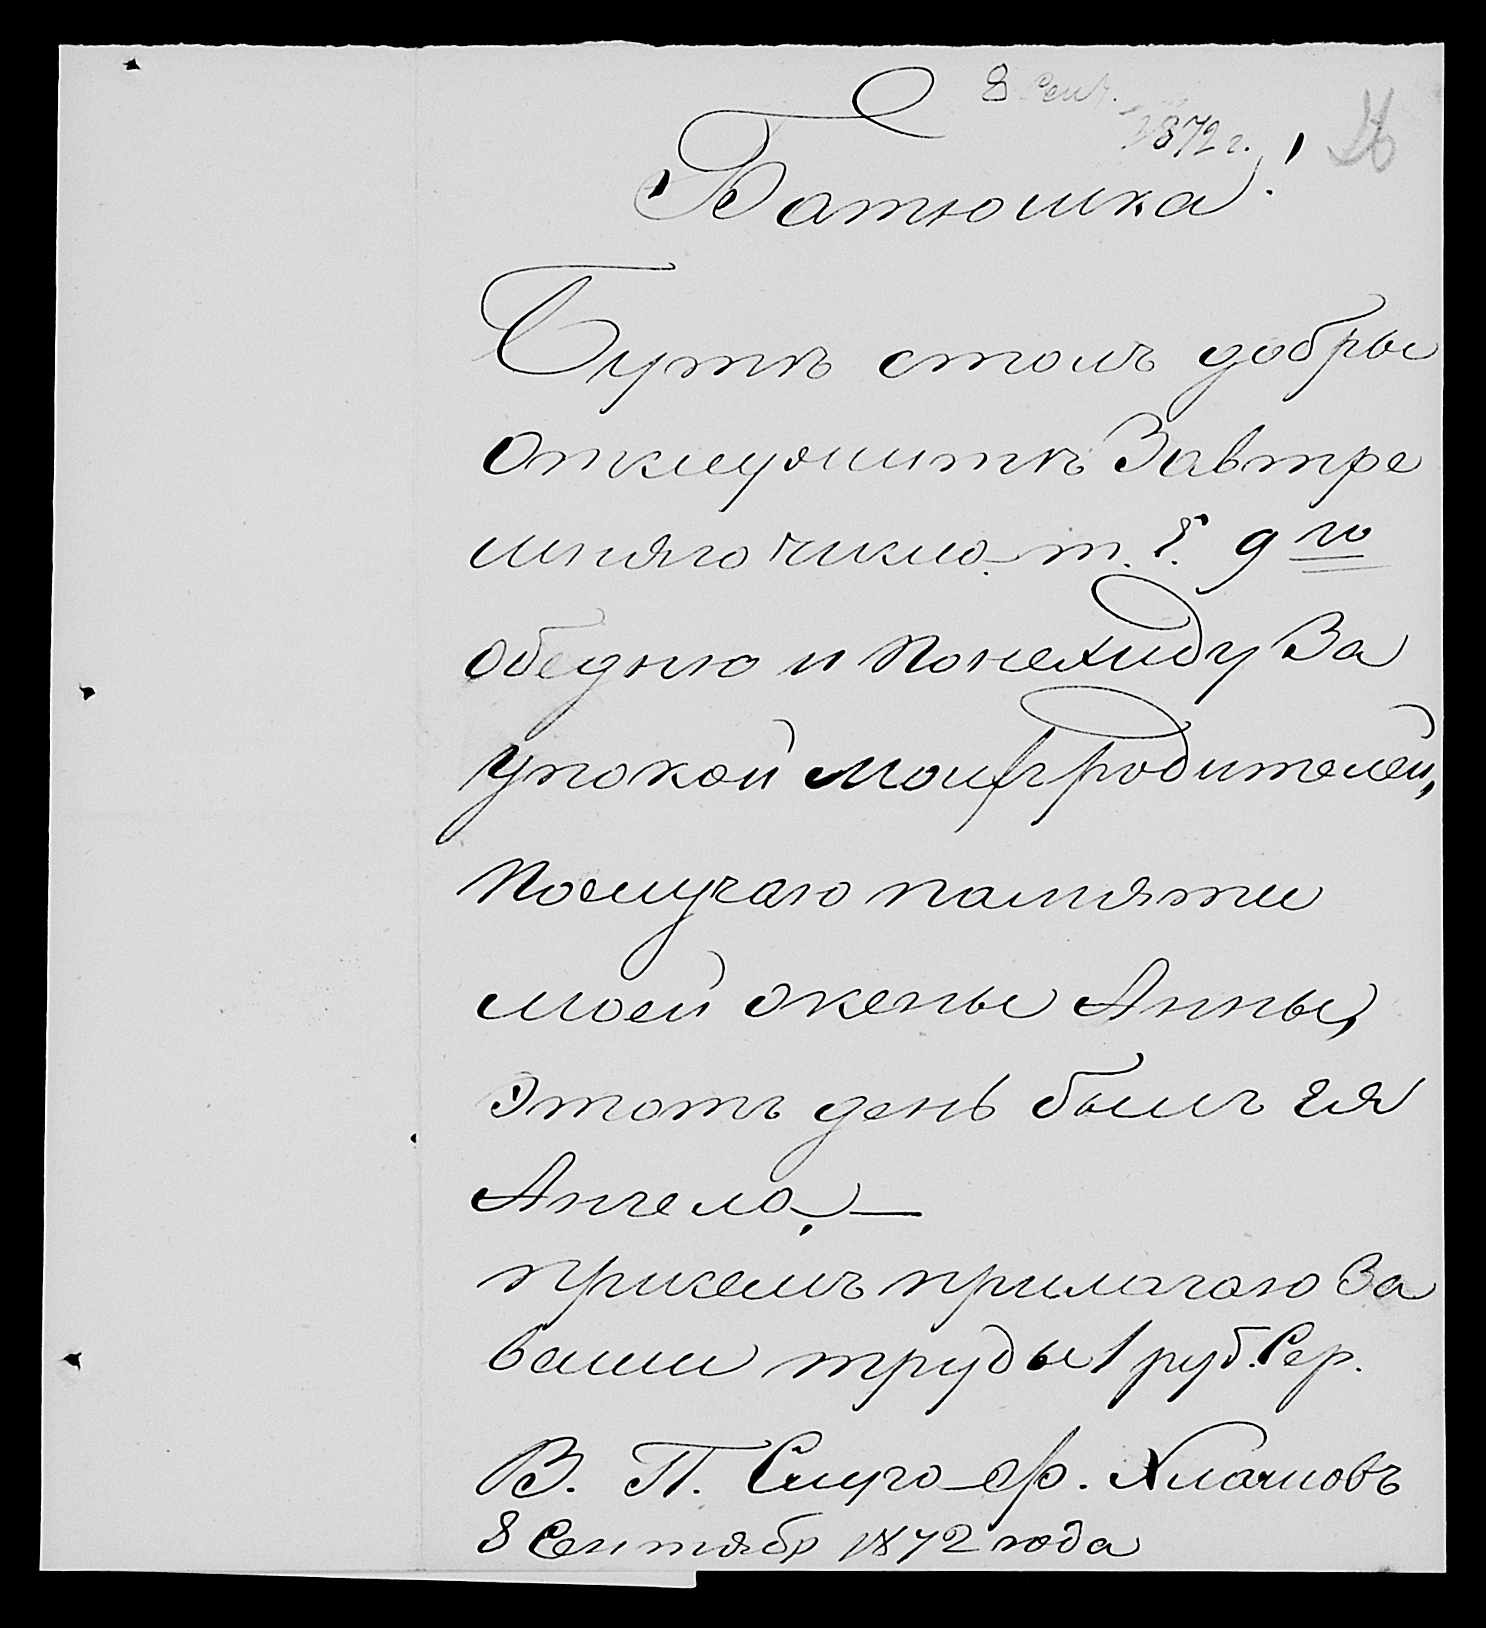 8 Сент.
1872 г.
Батюшка!
Бутте столь добры
Отслужитте Завтре
шняго число. т. Е. 9 го
обедню и понехиду За
упокой Моихъ родителей,
Послучаю памяти
моей жены Анны,
Этотъ день былъ Ея
Ангела. —
присемъ прилагаю За
ваши труды 1 руб. Сер.
В. П. Слуга Ф. Хламовъ
8 Сентябр 1872 года